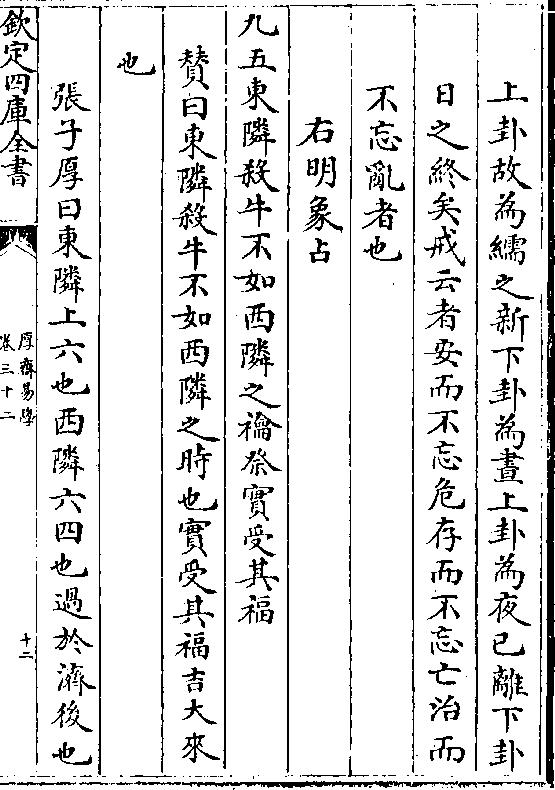 上卦故為繻之新下卦為晝上卦為夜已離下卦
日之終矣戒云者安而不忘危存而不忘亡治而
不忘亂者也
右明象占
九五東隣殺牛不如西隣之禴祭實受其福
賛曰東隣殺牛不如西隣之時也實受其福吉大來
也
張子厚曰東隣上六也西隣六四也過於濟後也
欽定四庫全書
厚齋易學
卷三十二
十二